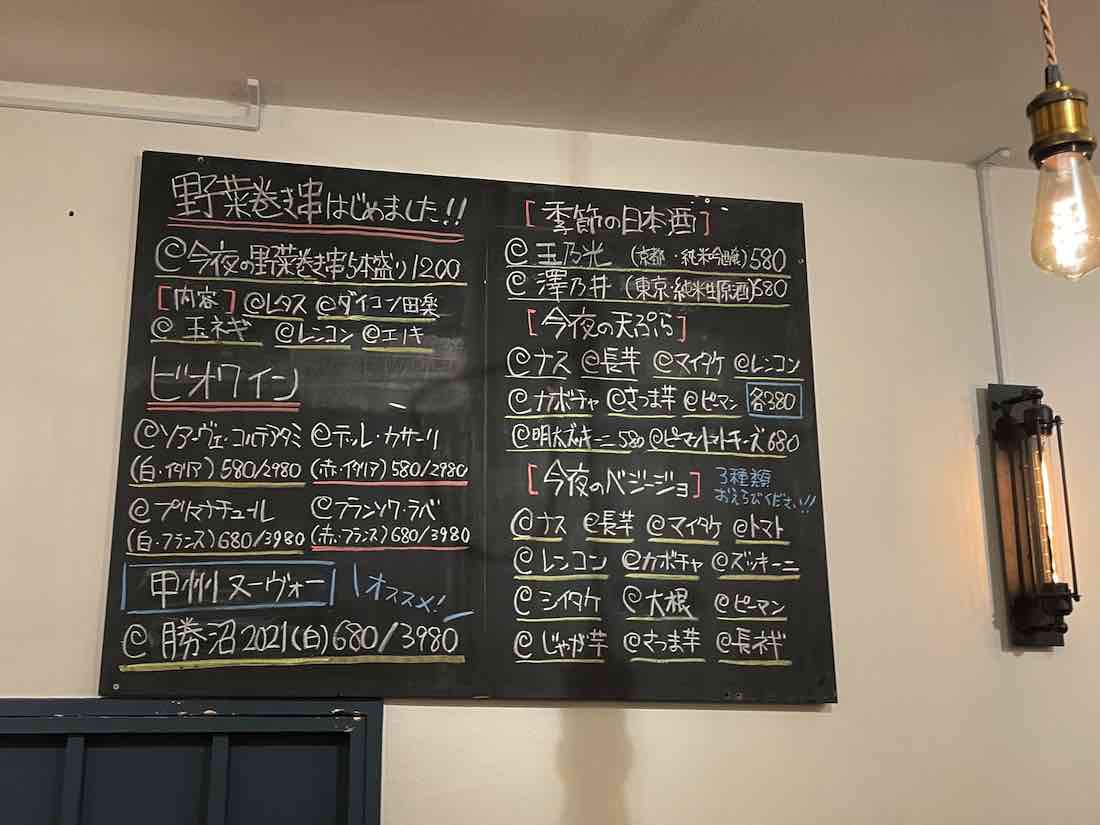 野菜巻き串はじめました!!
@今夜の野菜巻き串5本盛り1200
[内容] @レタス @ダイコン田楽
@玉ネギ @レンコン @エノキ
ビオワイン
@ソアーヴェ・コルテアダミ @テッレ・カサーリ
(白・イタリア) 580/2980 (赤・イタリア) 580/2980
@プリマナチュール @フランソワ・ラベ
(白・フランス) 680/3980 (赤・フランス) 680/3980
甲州ヌーヴォー \オススメ!/
@勝沼2021(白)680/3980
[季節の日本酒]
@玉乃光 (京都・純米吟醸)580
@澤乃井 (東京・純米生原酒)680
[今夜の天ぷら]
@ナス @長芋 @マイタケ @レンコン
@カボチャ @さつま芋 @ピーマン 各380
@明太ズッキーニ580 @ピーマントマトチーズ680
[今夜のベジージョ] 3種類
おえらびください!!
@ナス @長芋 @マイタケ @トマト
@レンコン @カボチャ @ズッキーニ
@シイタケ @大根 @ピーマン
@じゃが芋 @さつま芋 @長ネギ